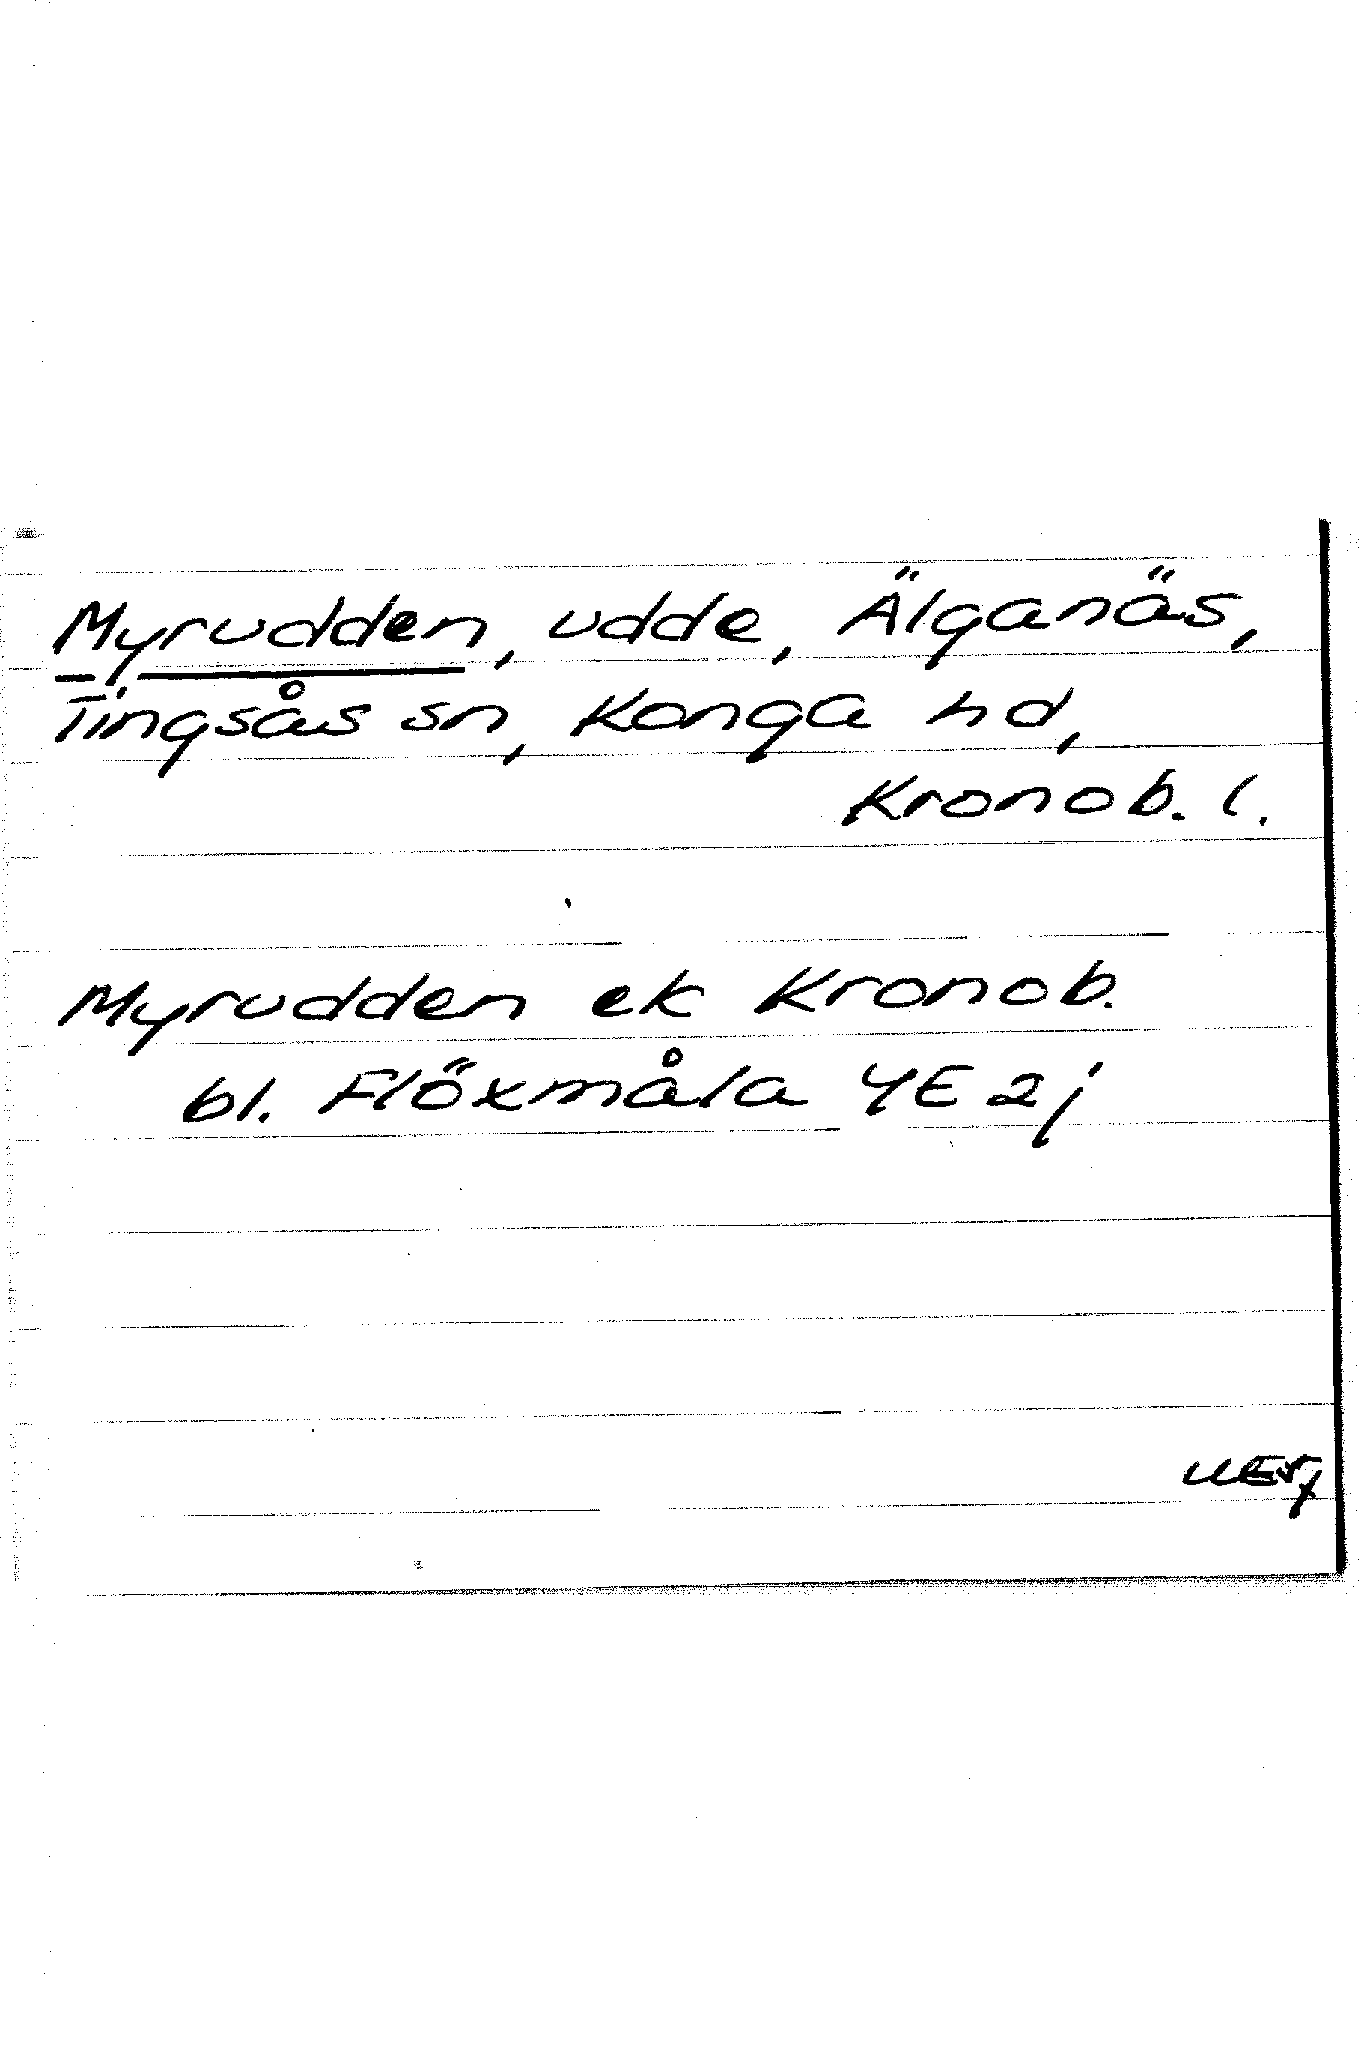 Myrudden, udde, Älganäs,
Tingsås sn, Konga hd,
Kronob. l.
Myrudden ek Kronob.
bl. Flöxmåla 4E 2j